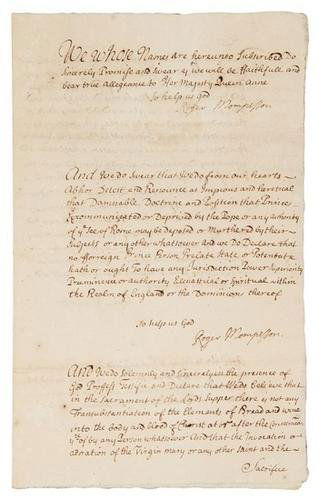 We whose Names are hereunto Subscribed Do
Sincerely Promise and swear yt we will be Faithfull and
bear true Allegiance to Her Majesty Queen Anne
So help us God
Roger Mompesson
And We do Swear that We do from our hearts
Abhor Detest and Renounce as Impious and Heretical
that Damnable Doctrine and Position that Princes
Excommunicated or Deprived by the Pope or any authority
of ye See of Rome may be deposed or Murthered by their
Subjects or any other whatsoever And We do Declare that
no fforreign Prince Person Prelate State or Potentate
hath or ought To have any Jurisdiction Power Superiority
Preeminence or authority Eclesiastical or Spiritual within
the Realm of England or the Dominions thereof
So help us God
Roger Mompesson
And We do Solemnly and Sincerely in the presence of
God Profess Testifie and Declare that We do believe that
in the Sacrament of the Lords Supper there is not any
Transubstantiation of the Elements of Bread and wine
into the body and blood of Christ at or after the Consecration
thereof by any Person whatsoever And that the Invocation or
adoration of the Virgin mary or any other Saint and the
Sacrifice